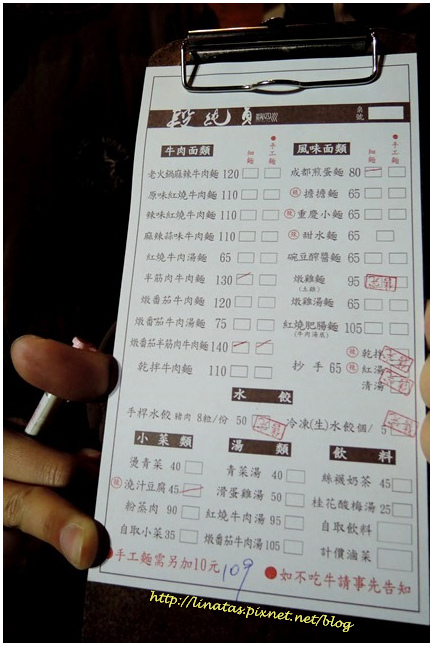 段純貞
桌號
牛肉麵類 細麵 ●手工麵
老火鍋麻辣牛肉麵 120
原味紅燒牛肉麵 110
辣味紅燒牛肉麵 110
麻辣蒜味牛肉麵 110
紅燒牛肉湯麵 65
半筋肉牛肉麵 130
燉番茄牛肉麵 120
燉番茄牛肉湯麵 75
燉番茄半筋肉牛肉麵 140
乾拌牛肉麵 110
風味麵類 細麵 ●手工麵
成都煎蛋麵 80
辣 擔擔麵 65
辣 重慶小麵 65
辣 甜水麵 65
碗豆酢醤麵 65
燉雞麵 95
(土雞)
燉雞湯麵 65
紅燒肥腸麵 105
(牛肉湯底)
抄手 65
辣 乾拌
辣 紅湯
清湯
水餃
手桿水餃 豬肉 8粒/份 50
冷凍(生)水餃個/ 5
小菜類
燙青菜 40
辣 澆汁豆腐 45
粉蒸肉 90
自取小菜 35
湯類
青菜湯 40
滑蛋雞湯 50
紅燒牛肉湯 95
燉番茄牛肉湯 105
飲料
絲襪奶茶 45
桂花酸梅湯 25
自取飲料
計價滷菜
●手工麵需另加10元
109
●如不吃牛請事先告知
http://linatas.pixnet.net/blog